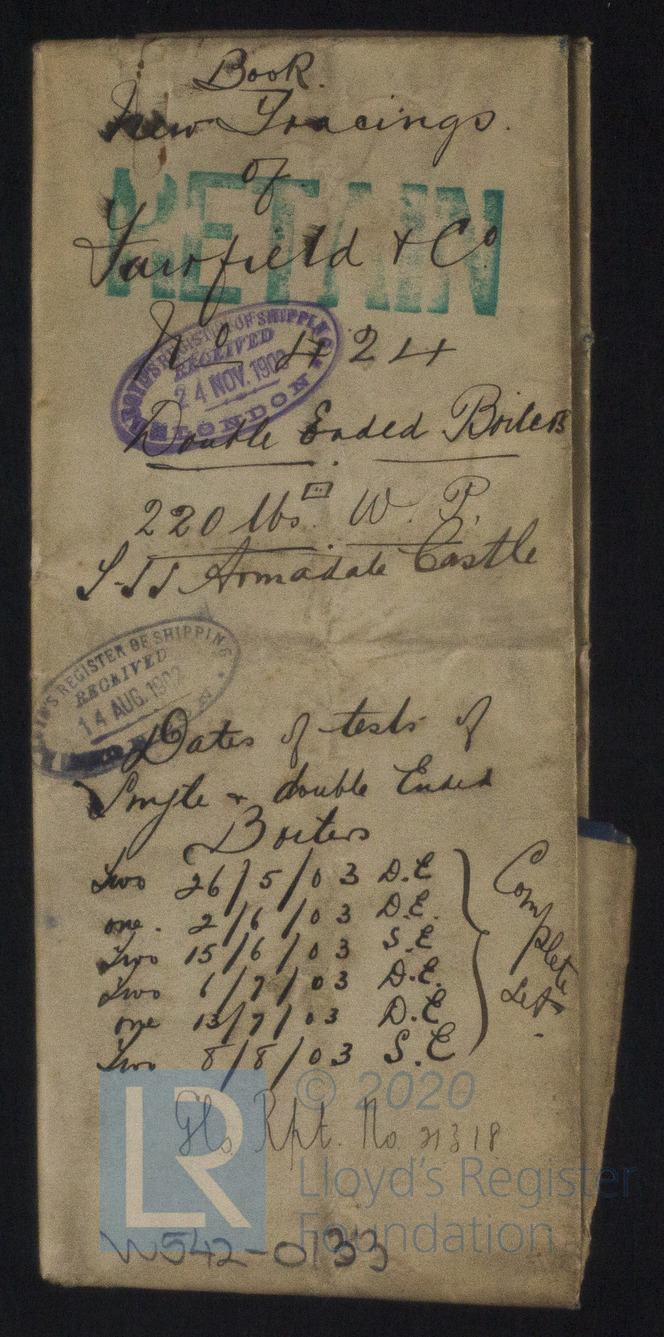 Book.
New Tracings.
of
RETAIN
Fairfield & Co
No 424
LLOYD'S REGISTER OF SHIPPING
RECEIVED
24 NOV. 1903
LONDON
Double Ended Boilers
220 lbs. W. P.
S.S. Armadale Castle
REGISTER OF SHIPPING
RECEIVED
14 AUG. 1902
Dates of tests of
Single & double Ended
Boilers
Two 26/5/03 D.E
one. 2/6/03 D.E.
Two 15/6/03 S.E
Two 6/7/03 D.E.
one 13/7/03 D.E
Two 8/8/03 S.E
Complete
Set.
© 2020
Gls Rpt. No. 21318
LR
Lloyd's Register
Foundation
W542-0133